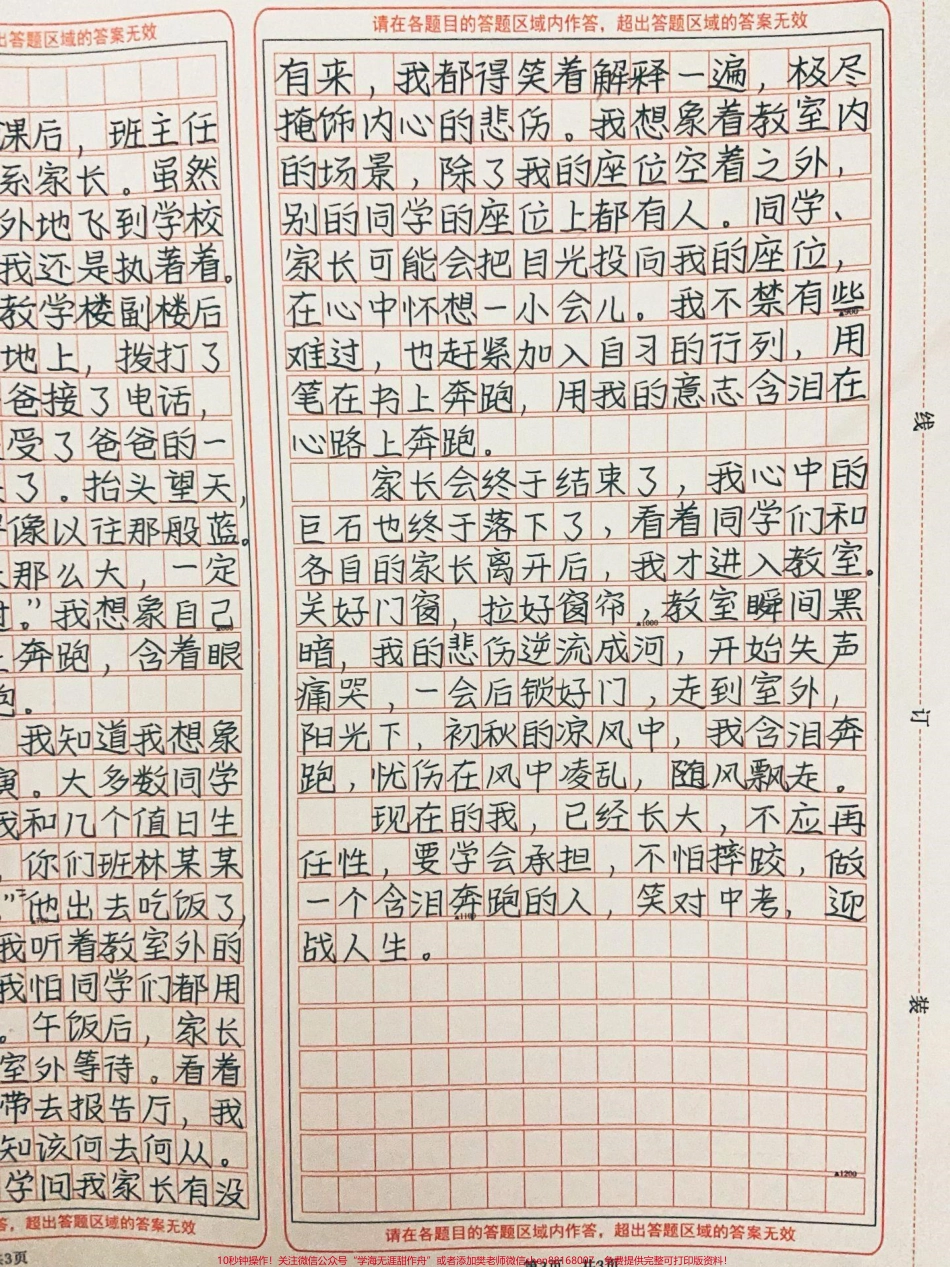 出答题区域的答案无效
课后，班主任
系家长。虽然
外地飞到学校
我还是执著着。
教学楼副楼后
地上，拨打了
爸接了电话，
受了爸爸的一
了。抬头望天，
像以往那般蓝。
那么大，一定
过。”我想象自己
奔跑，含着眼
跑。
我知道我想象
演。大多数同学
我和几个值日生
，你们班林某某
”“他出去吃饭了，
我听着教室外的
我怕同学们都用
。午饭后，家长
室外等待。看着
带去报告厅，我
知该何去何从。
学问我家长有没
答，超出答题区域的答案无效
共3页
请在各题目的答题区域内作答，超出答题区域的答案无效
有来，我都得笑着解释一遍，极尽
掩饰内心的悲伤。我想象着教室内
的场景，除了我的座位空着之外，
别的同学的座位上都有人。同学、
家长可能会把目光投向我的座位，
在心中怀想一小会儿。我不禁有些
▲900
难过，也赶紧加入自习的行列，用
笔在书上奔跑，用我的意志含泪在
心路上奔跑。
家长会终于结束了，我心中的
巨石也终于落下了，看着同学们和
各自的家长离开后，我才进入教室。
关好门窗，拉好窗帘，教室瞬间黑
▲1000
暗，我的悲伤逆流成河，开始失声
痛哭，一会后锁好门，走到室外，
阳光下，初秋的凉风中，我含泪奔
跑，忧伤在风中凌乱，随风飘走。
现在的我，已经长大，不应再
任性，要学会承担，不怕摔跤，做
一个含泪奔跑的人，笑对中考，迎
▲1100
战人生。
▲1200
请在各题目的答题区域内作答，超出答题区域的答案无效
第2页 共3页
线
订
装